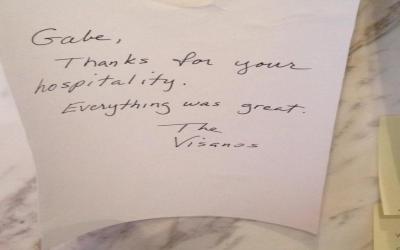 Gabe,
Thanks for your
hospitality.
Everything was great.
The
Visanos